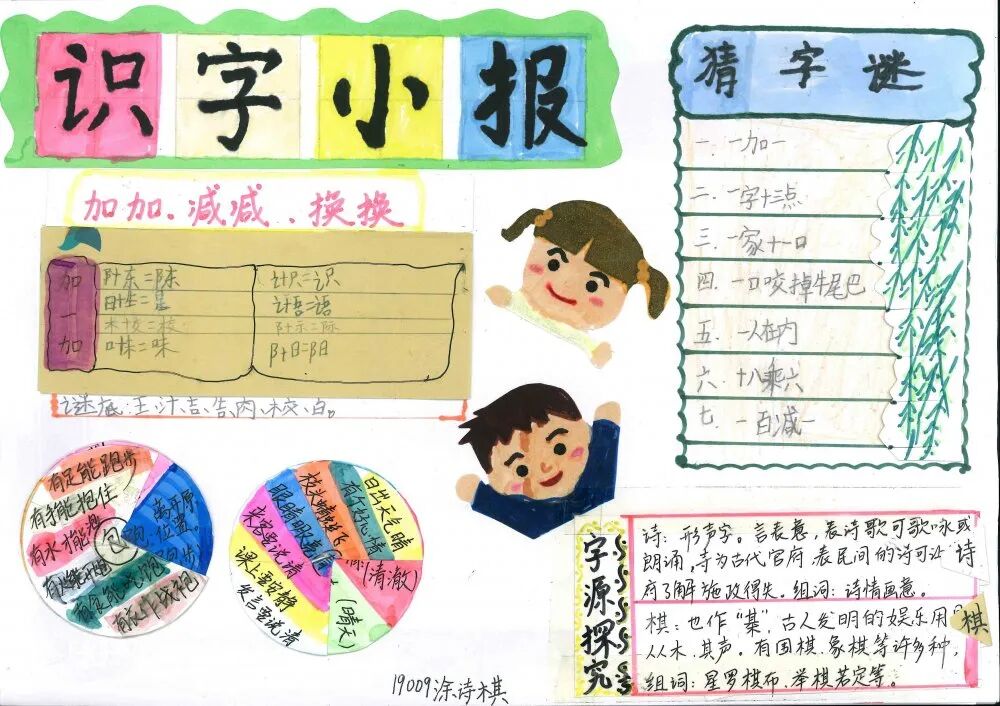 识字小报
加加、减减、换换
加一加
阝+东=陈
日+生=星
木+交=校
口+未=味
讠+只=识
讠+吾=语
阝+示=际
阝+日=阳
谜底:王、汁、吉、告、肉、校、白。
猜字谜
一.一加一
二.一字十三点
三.一家十一口
四.一口咬掉牛尾巴
五.一人在内
六.十八乘六
七.一百减一
有足能跑步
有手能抱住
有水才能泡
包
离开原
位置
日出天气晴
有大好心情
枝头蜻蜓飞
眼睛
来客要说请
课上要安静
发言要说清
(清澈)
(晴天)
字源探究
诗:形声字。言表意,表诗歌可歌咏或
朗诵,寺为古代官府,表民间的诗可让
府了解施政得失。组词:诗情画意。
诗
棋:也作“棊”,古人发明的娱乐用
从木、其声。有围棋、象棋等许多种,
组词:星罗棋布、举棋若定等。
棋
19009涂诗棋